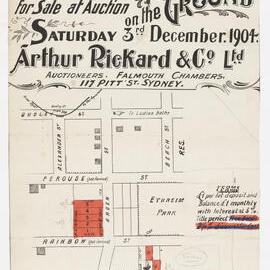 for Sale at Auction on the GROUND
SATURDAY 3rd December. 1904.
Arthur Rickard & Co Ltd
AUCTIONEERS. FALMOUTH CHAMBERS,
117 PITT ST. SYDNEY.
DUDLEY
To Ladies Baths
ALEXANDER ST
ST
BEACH
RES.
PEROUSE
ST
ARDEN
EPHREIM
PARK
RAINBOW
ST
TERMS
£1 per lot deposit and
Balance £1 monthly
with Interest at 5%
Title perfect